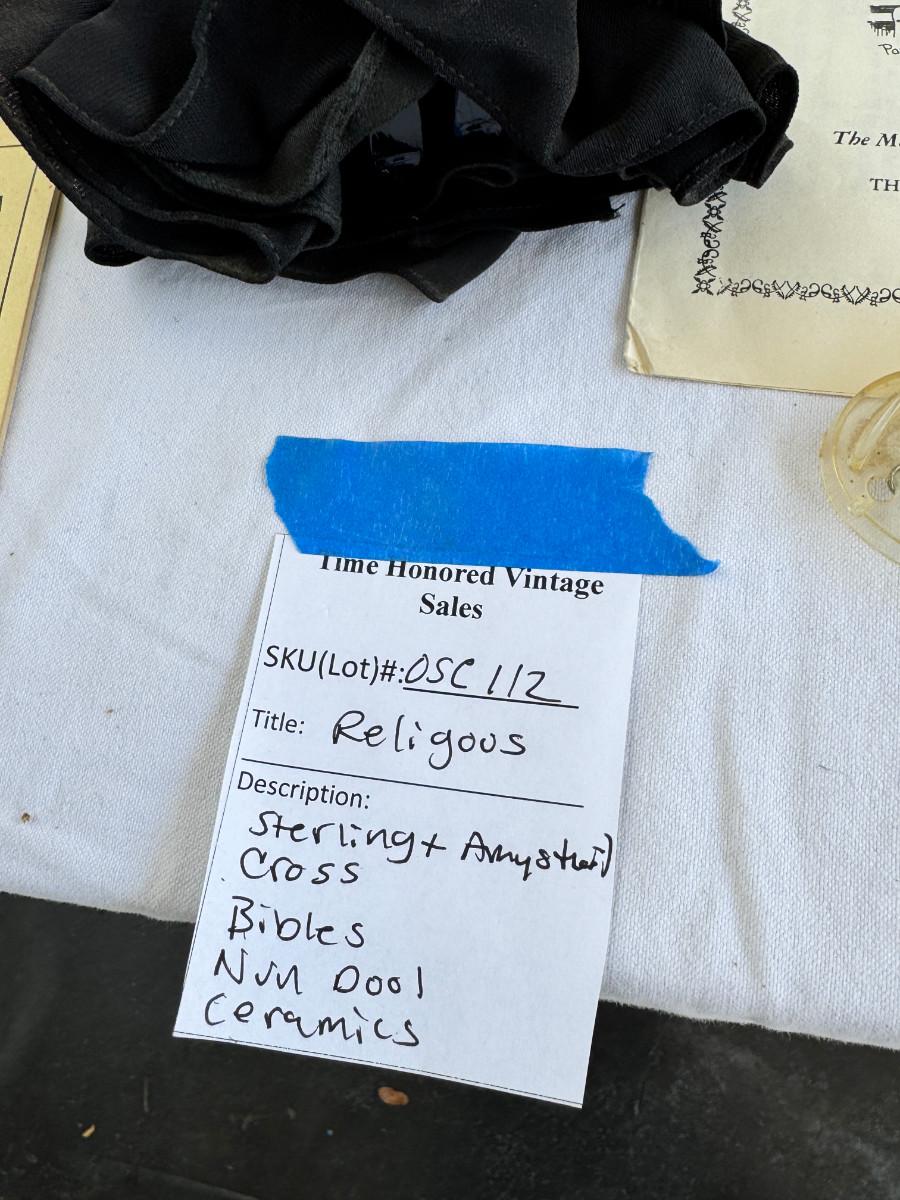 The M
TH
Time Honored Vintage
Sales
SKU(Lot)#: OSC 112
Title: Religous
Description:
Sterling + Amysthei
Cross
Bibles
Nun Dool
Ceramics